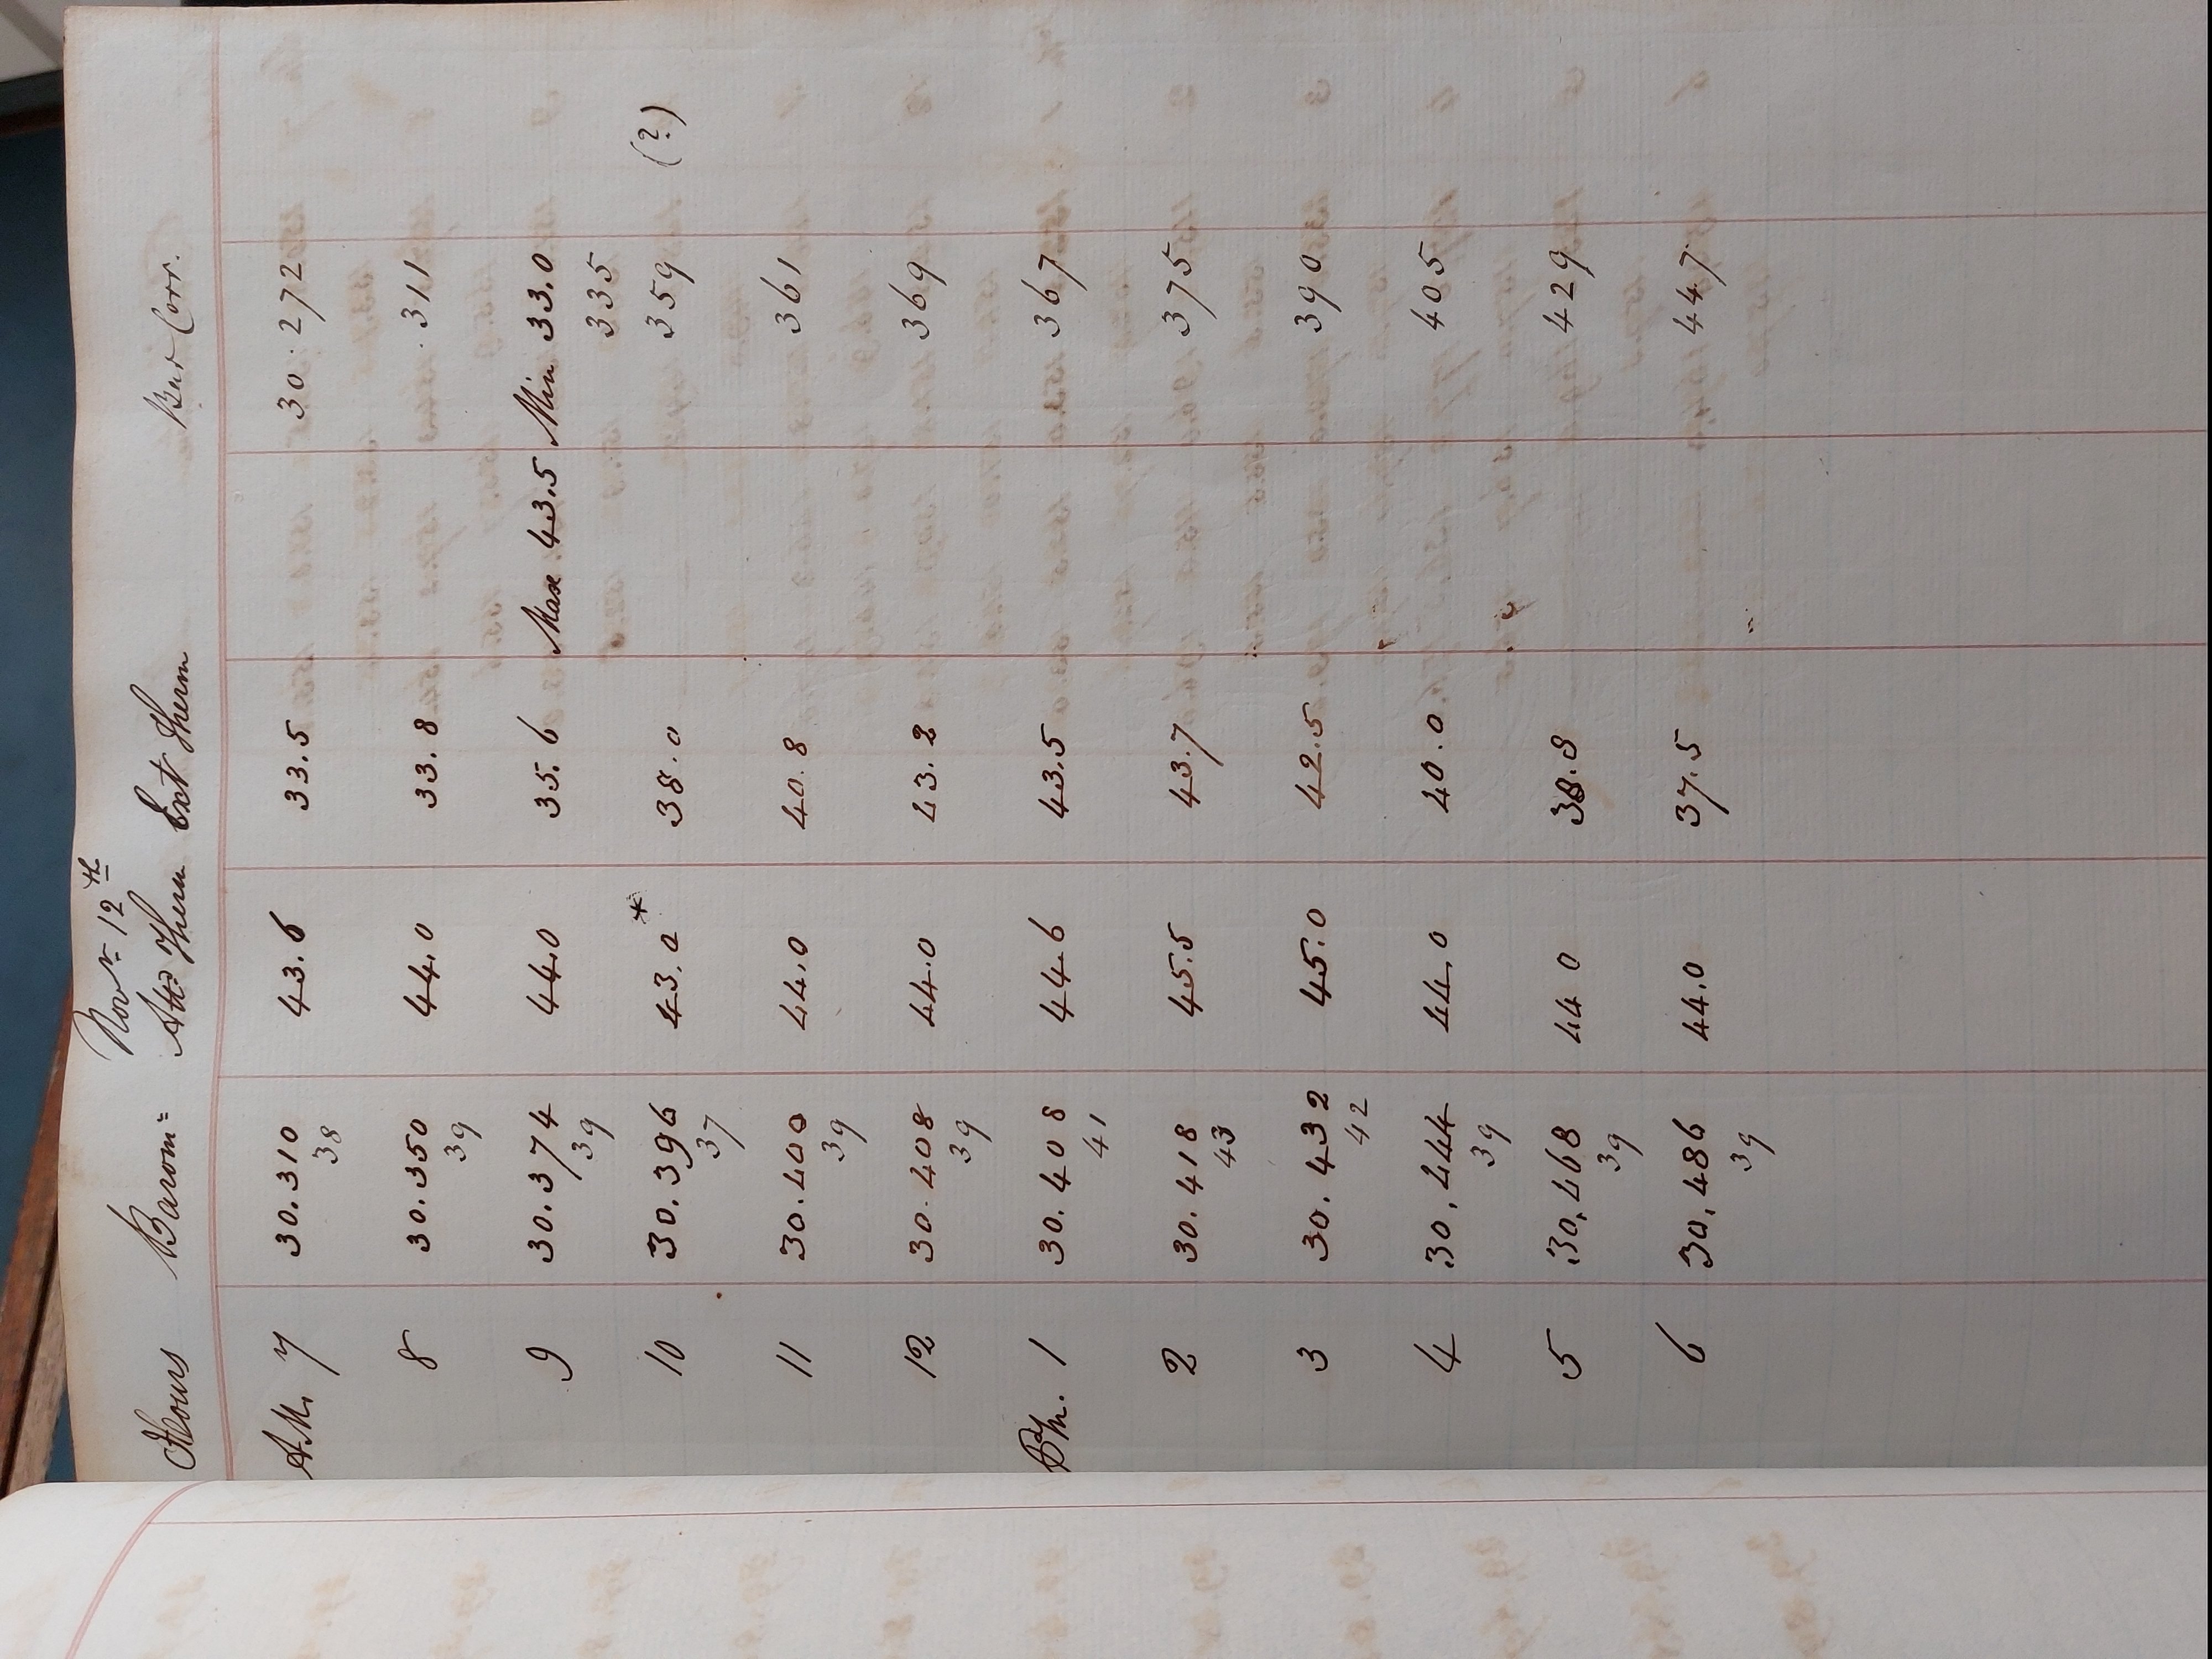 Novr 12th
Hours Barom= Attd Therm Ext Therm Bar Corr.
A.M. 7 30.310 43.6 33.5 30.272
38
8 30.350 44.0 33.8 .311
39
9 30.374 44.0 35.6 Max 43.5 Min 33.0
39 335
10 30.396 43.0* 38.0 359 (?)
37
11 30.400 44.0 40.8 361
39
12 30.408 44.0 43.2 369
39
P.M. 1 30.408 44.6 43.5 367
41
2 30.418 45.5 43.7 375
43
3 30.432 45.0 42.5 390
42
4 30,444 44.0 40.0 405
39
5 30,468 44 0 38.8 429
39
6 30,486 44.0 37.5 447
39